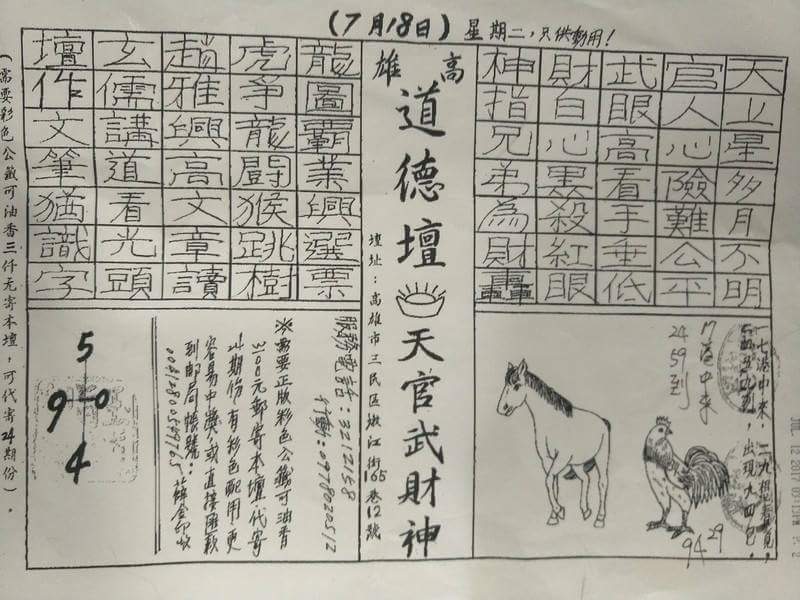 (7月18日) 星期二,只供參用!
天上星多月不明
官人心險難公平
武眼高看手垂低
財白心黑殺紅眼
神指兄弟為財轟
高雄
道德壇 天官武財神
壇址:高雄市三民區嫩江街165巷12號
龍圖霸業興選票
虎爭龍鬪猴跳樹
趙雅興高文章讀
玄儒講道看光頭
壇作文筆猶識字
七港中來
2459到
出現九四包。
9429
服務電話:3212158
行動:0978020512
※需要正版彩色公籤可油香
3000元郵寄本壇代寄
24期份,有彩色配用更
容易中獎,或直接匯款
到郵局帳號:
5
9 0
4
(需要彩色公籤可油香三仟元寄本壇,可代寄24期份)。